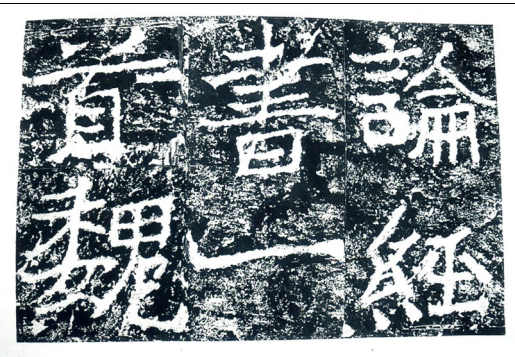 論經
書一
首魏